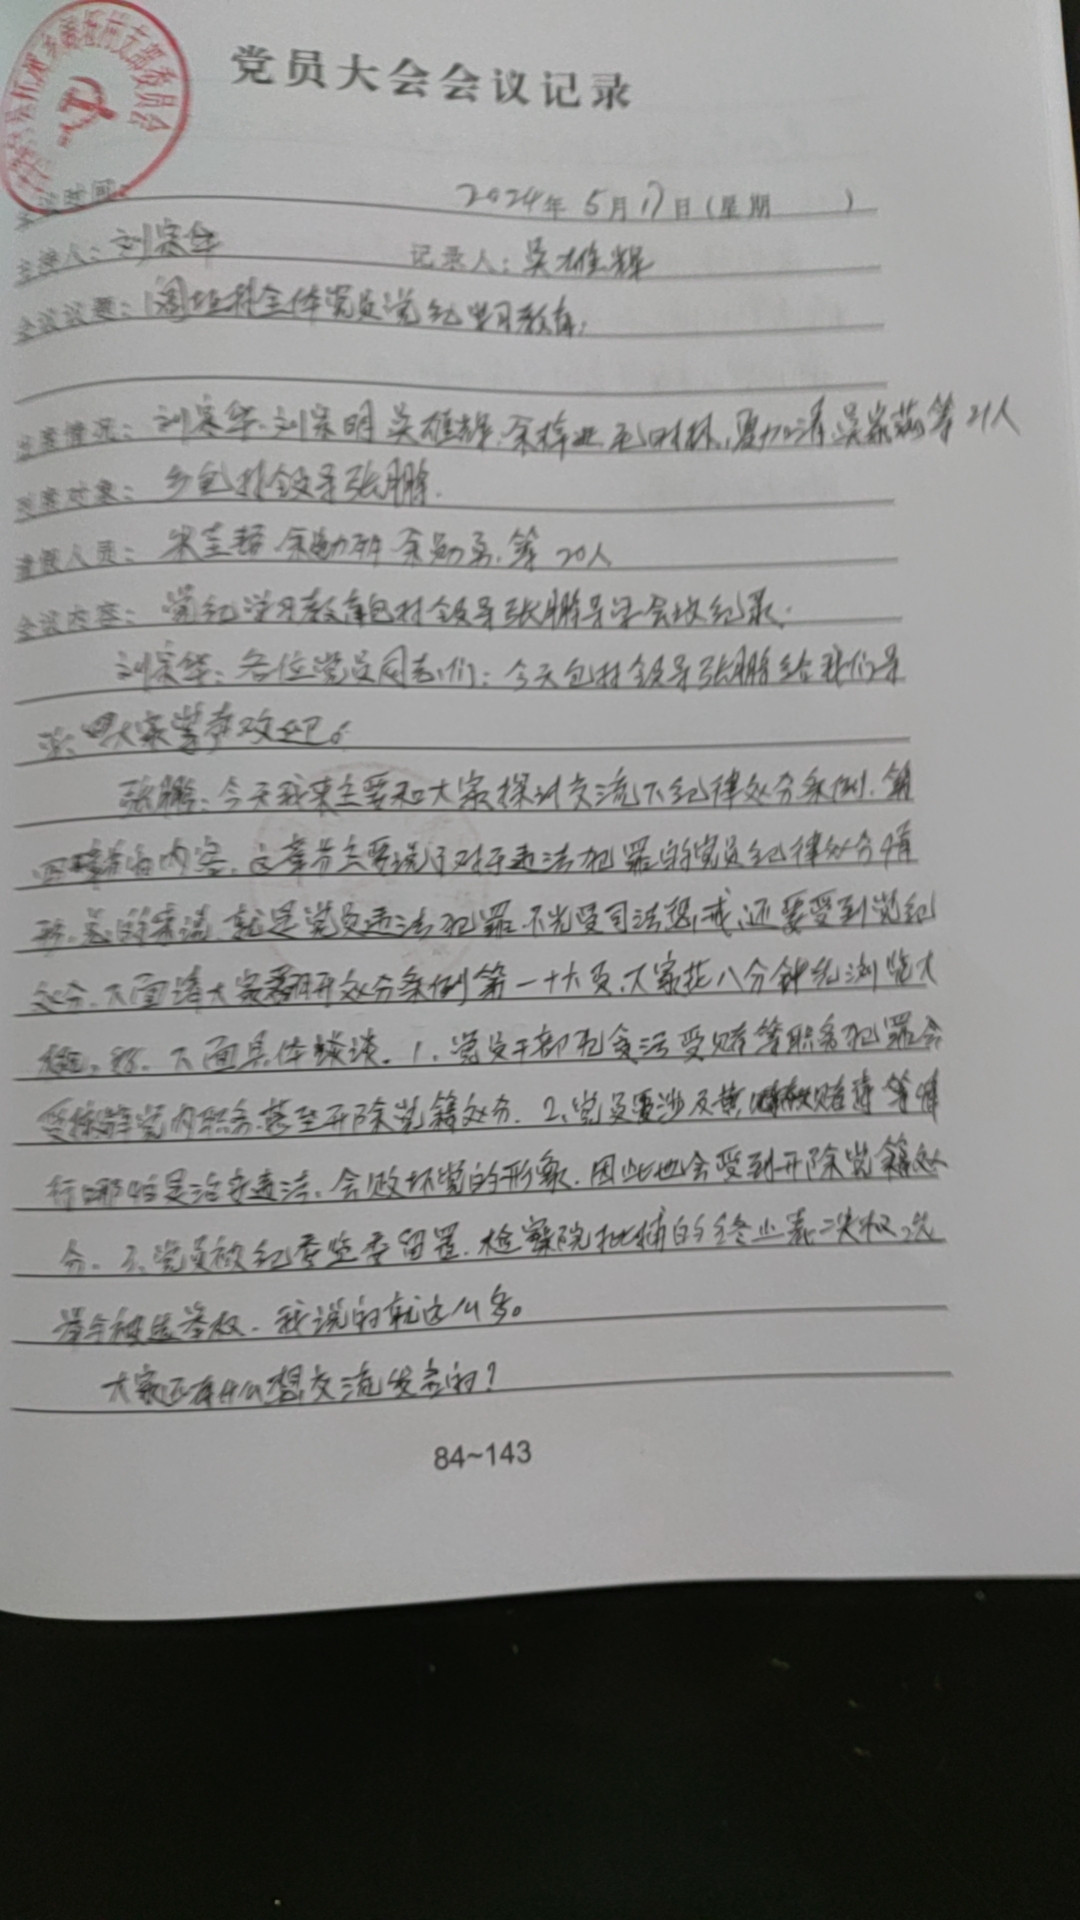 党员大会会议记录
村支部委员会
会议时间: 2024年 5月17日(星期 )
主持人: 刘宗华 记录人: 吴雄辉
会议议题: 全体党员党纪学习教育;
出席情况: 刘宗华、刘宗明 吴雄辉、等21人
列席对象: 乡包村领导张鹏.
请假人员: 等20人
会议内容: 党纪学习教育包村领导张鹏导学会议纪录.
刘宗华: 各位党员同志们: 今天包村领导张鹏给我们导
大家掌声欢迎。
张鹏: 今天我来主要和大家探讨交流下纪律处分条例.第
四章节的内容, 这章节主要说了对于违法犯罪的党员纪律处分情
形.总的来说,就是党员违法犯罪.不光受司法惩戒,还要受到党纪
处分.下面请大家翻开处分条例第一十六页,大家花八分钟先浏览大
概。好. 下面具体谈谈. 1. 党员干部犯贪污受贿等职务犯罪会
受撤销党内职务.甚至开除党籍处分. 2、党员涉及黄赌毒等情
行哪怕是治安违法.会败坏党的形象.因此也会受到开除党籍处
分. 3、党员被纪委监委留置.检察院批捕的终止表决权、选
举与被选举权. 我说的就这么多。
大家还有什么想交流发言的?
84~143